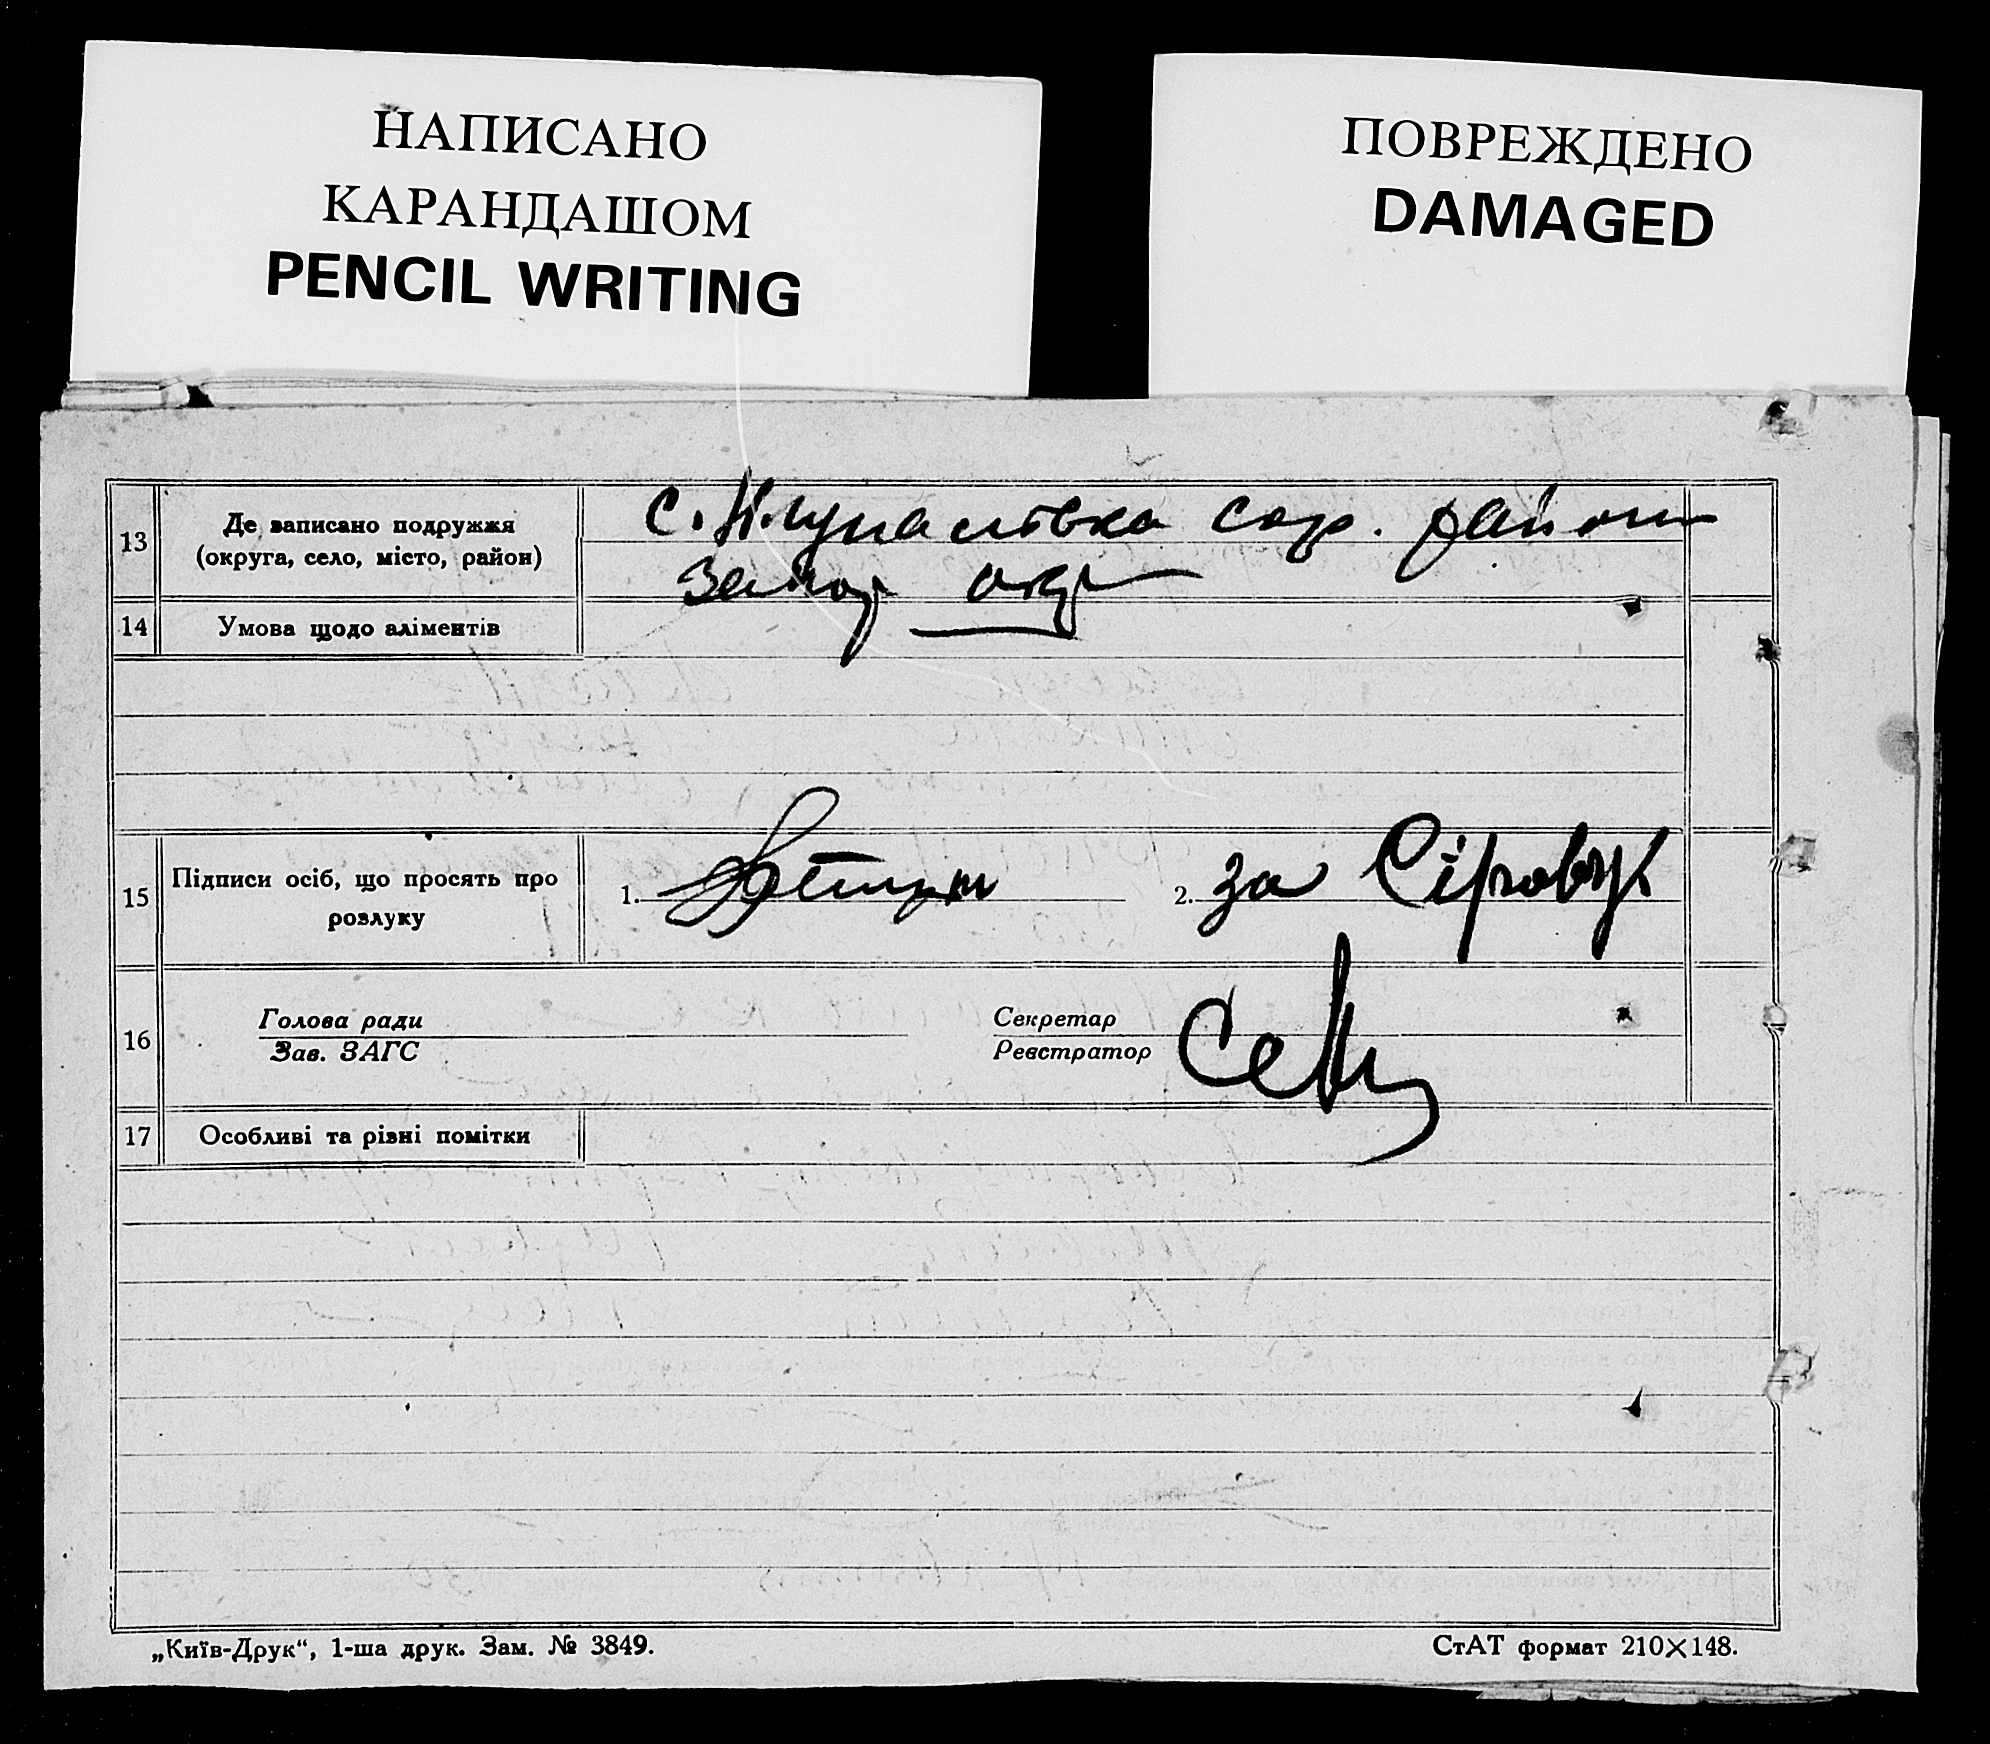 НАПИСАНО
КАРАНДАШОМ
PENCIL WRITING
ПОВРЕЖДЕНО
DAMAGED
13
Де записано подружжя
(округа, село, місто, район)
с. район
Запор окр
14
Умова щодо аліментів
15
Підписи осіб, що просять про
розлуку
1.
2. за
16
Голова ради
Зав. ЗАГС
Секретар
Реєстратор
17
Особливі та різні помітки
„Київ-Друк“, 1-ша друк. Зам. № 3849.
СтАТ формат 210×148.